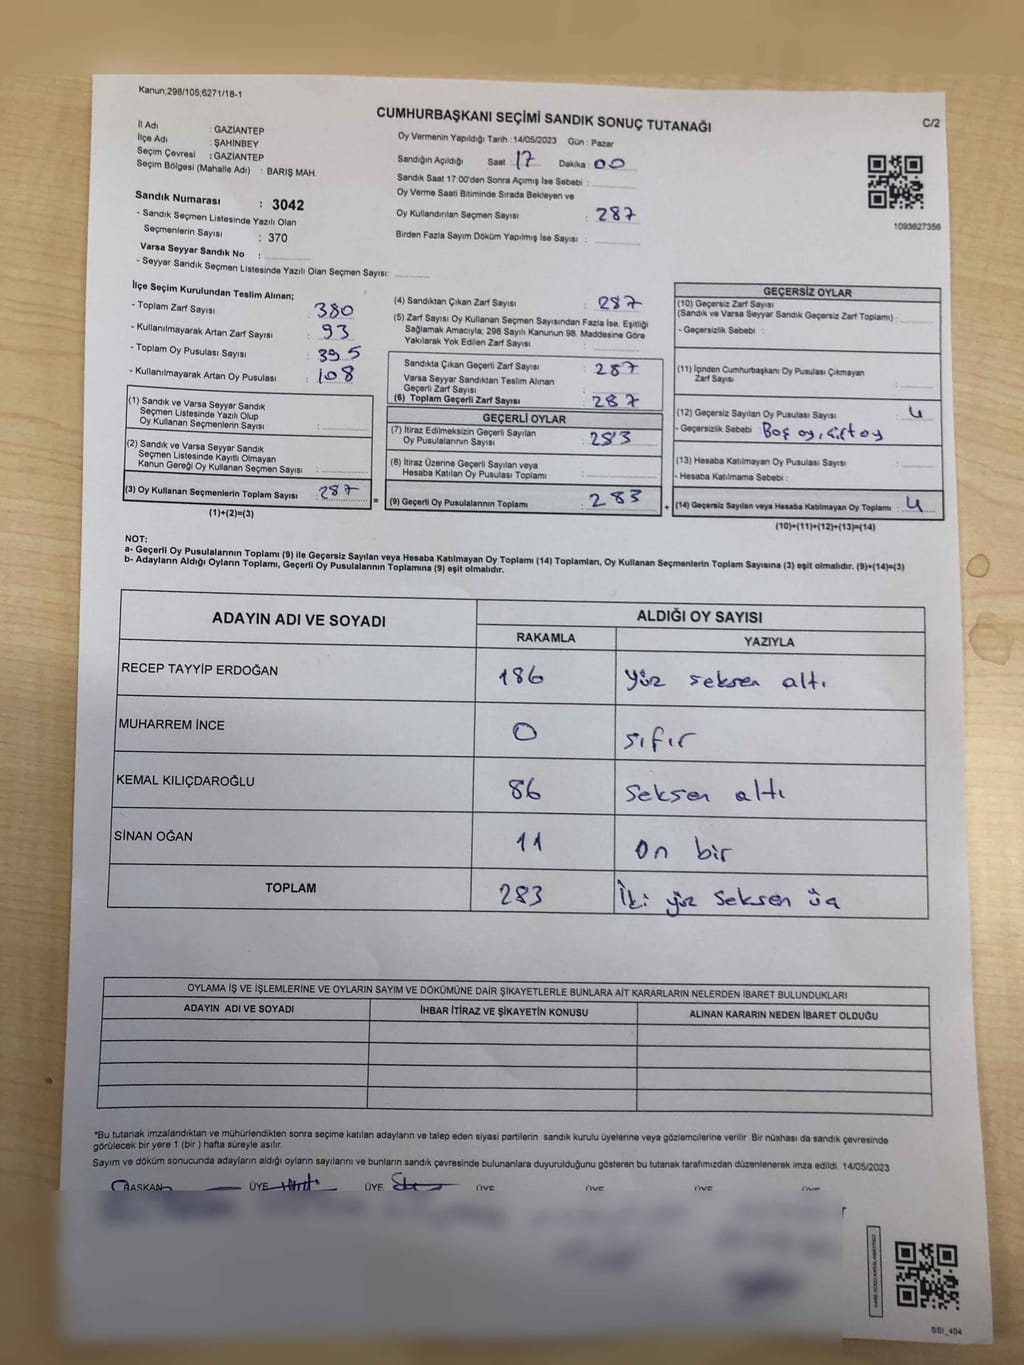 Kanun;298/105;6271/18-1
CUMHURBAŞKANI SEÇİMİ SANDIK SONUÇ TUTANAĞI
C/2
İl Adı : GAZİANTEP
İlçe Adı : ŞAHİNBEY
Seçim Çevresi : GAZİANTEP
Seçim Bölgesi (Mahalle Adı) : BARIŞ MAH.
Sandık Numarası : 3042
- Sandık Seçmen Listesinde Yazılı Olan
Seçmenlerin Sayısı : 370
Varsa Seyyar Sandık No :
- Seyyar Sandık Seçmen Listesinde Yazılı Olan Seçmen Sayısı:
Oy Vermenin Yapıldığı Tarih : 14/05/2023 Gün : Pazar
Sandığın Açıldığı Saat 17 Dakika : 00
Sandık Saat 17:00'den Sonra Açımış İse Sebebi :
Oy Verme Saati Bitiminde Sırada Bekleyen ve
Oy Kullandırılan Seçmen Sayısı : 287
Birden Fazla Sayım Döküm Yapılmış İse Sayısı :
1093627356
İlçe Seçim Kurulundan Teslim Alınan;
- Toplam Zarf Sayısı : 380
- Kullanılmayarak Artan Zarf Sayısı : 93
- Toplam Oy Pusulası Sayısı : 395
- Kullanılmayarak Artan Oy Pusulası : 108
(1) Sandık ve Varsa Seyyar Sandık
Seçmen Listesinde Yazılı Olup
Oy Kullanan Seçmenlerin Sayısı :
(2) Sandık ve Varsa Seyyar Sandık
Seçmen Listesinde Kayıtlı Olmayan
Kanun Gereği Oy Kullanan Seçmen Sayısı :
(3) Oy Kullanan Seçmenlerin Toplam Sayısı : 287
(1)+(2)=(3)
(4) Sandıktan Çıkan Zarf Sayısı : 287
(5) Zarf Sayısı Oy Kullanan Seçmen Sayısından Fazla İse, Eşitliği
Sağlamak Amacıyla; 298 Sayılı Kanunun 98. Maddesine Göre
Yakılarak Yok Edilen Zarf Sayısı :
Sandıkta Çıkan Geçerli Zarf Sayısı : 287
Varsa Seyyar Sandıktan Teslim Alınan
Geçerli Zarf Sayısı :
(6) Toplam Geçerli Zarf Sayısı : 287
GEÇERLİ OYLAR
(7) İtiraz Edilmeksizin Geçerli Sayılan
Oy Pusulalarının Sayısı : 283
(8) İtiraz Üzerine Geçerli Sayılan veya
Hesaba Katılan Oy Pusulası Toplamı :
= (9) Geçerli Oy Pusulalarının Toplamı : 283
GEÇERSİZ OYLAR
(10) Geçersiz Zarf Sayısı
(Sandık ve Varsa Seyyar Sandık Geçersiz Zarf Toplamı) :
- Geçersizlik Sebebi :
(11) İçinden Cumhurbaşkanı Oy Pusulası Çıkmayan
Zarf Sayısı :
(12) Geçersiz Sayılan Oy Pusulası Sayısı : 4
- Geçersizlik Sebebi : Boş oy, çift oy
(13) Hesaba Katılmayan Oy Pusulası Sayısı :
- Hesaba Katılmama Sebebi :
+ (14) Geçersiz Sayılan veya Hesaba Katılmayan Oy Toplamı : 4
(10)+(11)+(12)+(13)=(14)
NOT:
a- Geçerli Oy Pusulalarının Toplamı (9) ile Geçersiz Sayılan veya Hesaba Katılmayan Oy Toplamı (14) Toplamları, Oy Kullanan Seçmenlerin Toplam Sayısına (3) eşit olmalıdır. (9)+(14)=(3)
b- Adayların Aldığı Oyların Toplamı, Geçerli Oy Pusulalarının Toplamına (9) eşit olmalıdır.
ADAYIN ADI VE SOYADI
ALDIĞI OY SAYISI
RAKAMLA YAZIYLA
RECEP TAYYİP ERDOĞAN 186 Yüz seksen altı
MUHARREM İNCE 0 sıfır
KEMAL KILIÇDAROĞLU 86 Seksen altı
SİNAN OĞAN 11 On bir
TOPLAM 283 İki yüz seksen üç
OYLAMA İŞ VE İŞLEMLERİNE VE OYLARIN SAYIM VE DÖKÜMÜNE DAİR ŞİKAYETLERLE BUNLARA AİT KARARLARIN NELERDEN İBARET BULUNDUKLARI
ADAYIN ADI VE SOYADI İHBAR İTİRAZ VE ŞİKAYETİN KONUSU ALINAN KARARIN NEDEN İBARET OLDUĞU
*Bu tutanak imzalandıktan ve mühürlendikten sonra seçime katılan adayların ve talep eden siyasi partilerin sandık kurulu üyelerine veya gözlemcilerine verilir. Bir nüshası da sandık çevresinde
görülecek bir yere 1 (bir) hafta süreyle asılır.
Sayım ve döküm sonucunda adayların aldığı oyların sayılarını ve bunların sandık çevresinde bulunanlara duyurulduğunu gösteren bu tutanak tarafımızdan düzenlenerek imza edildi. 14/05/2023
BAŞKAN ÜYE ÜYE ÜYE ÜYE ÜYE ÜYE
SSI_404